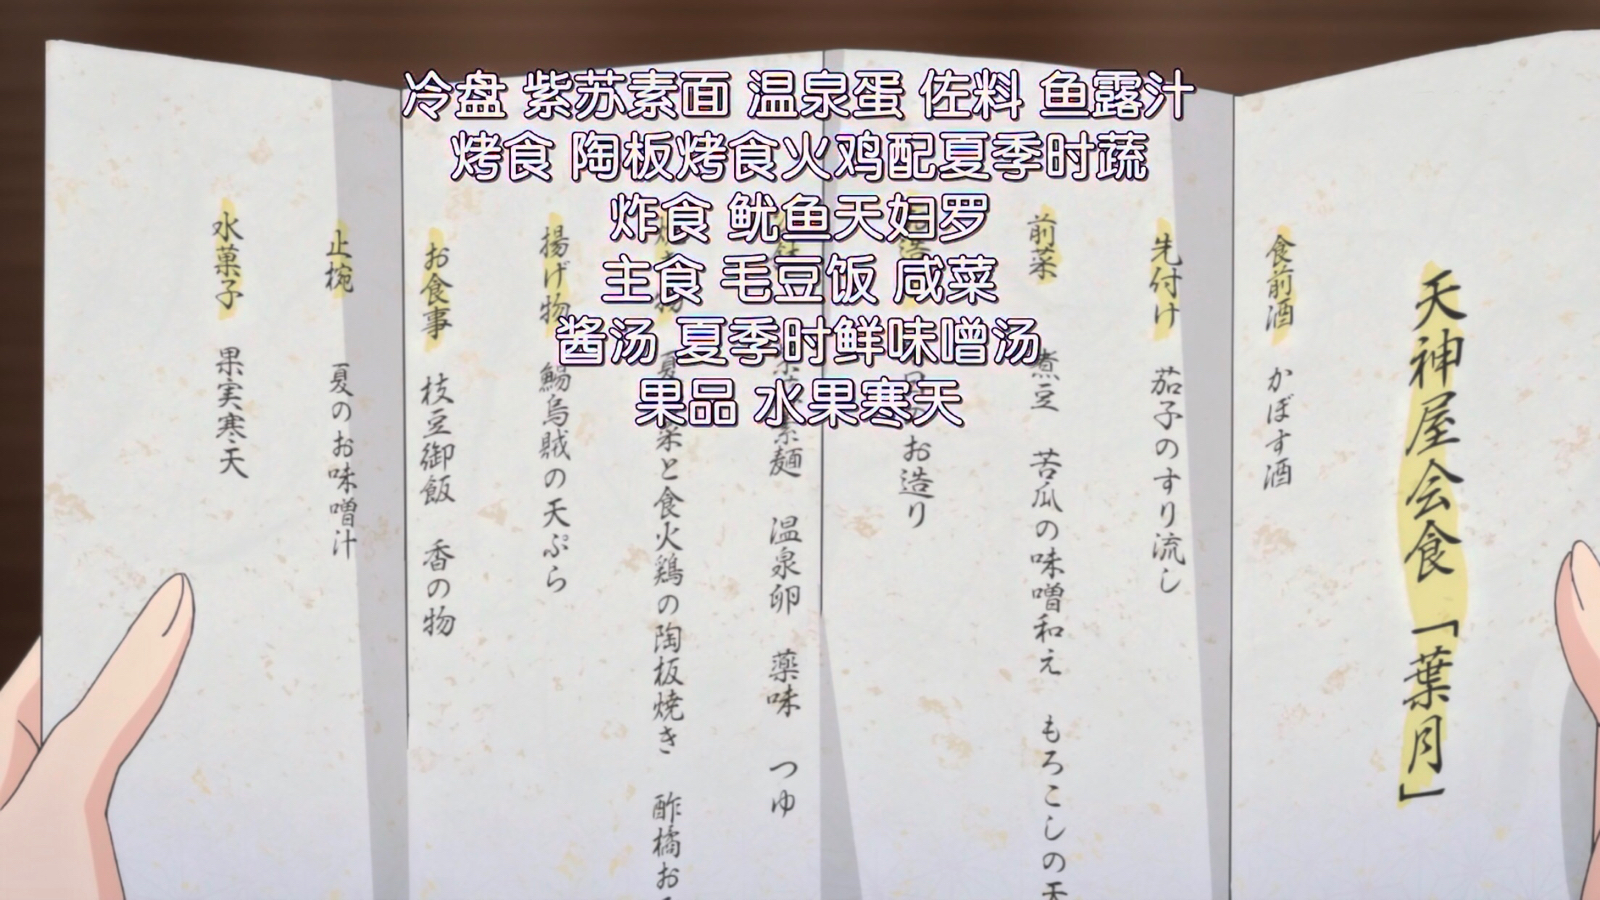 冷盘 紫苏素面 温泉蛋 佐料 鱼露汁
烤食 陶板烤食火鸡配夏季时蔬
炸食 鱿鱼天妇罗
主食 毛豆饭 咸菜
酱汤 夏季时鲜味噌汤
果品 水果寒天
天神屋会食「葉月」
食前酒 かぼす酒
先付け 茄子のすり流し
前菜 煮豆 苦瓜の味噌和え もろこしの天
お造り
素麺 温泉卵 薬味 つゆ
菜と食火鶏の陶板焼き 酢橘お
揚げ物 鯣烏賊の天ぷら
お食事 枝豆御飯 香の物
止椀 夏のお味噌汁
水菓子 果実寒天